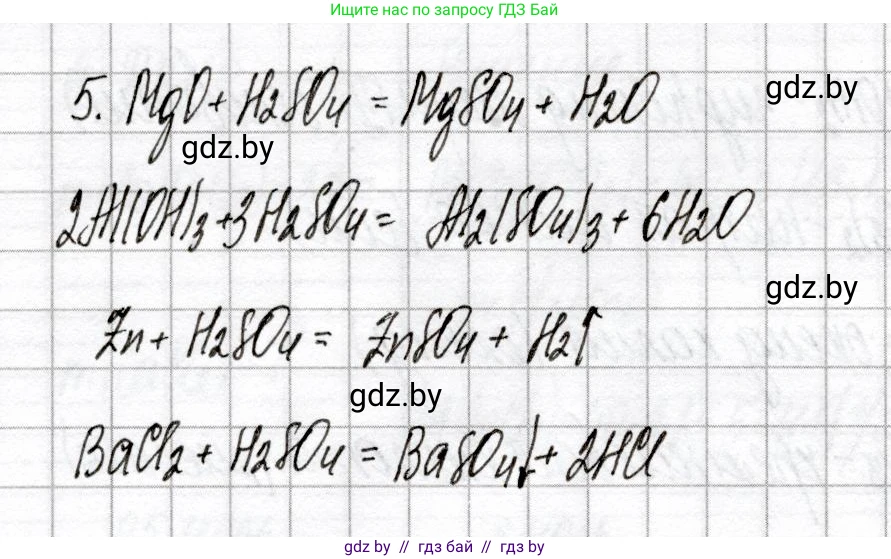 Ищите нас по запросу ГДЗ Бай
5. MgO + H2SO4 = MgSO4 + H2O
gdz.by
gdz.by
2Al(OH)3 + 3H2SO4 = Al2(SO4)3 + 6H2O
gdz.by
Zn + H2SO4 = ZnSO4 + H2↑
gdz.by
BaCl2 + H2SO4 = BaSO4↓ + 2HCl
gdz.by // гдз бай // гдз by